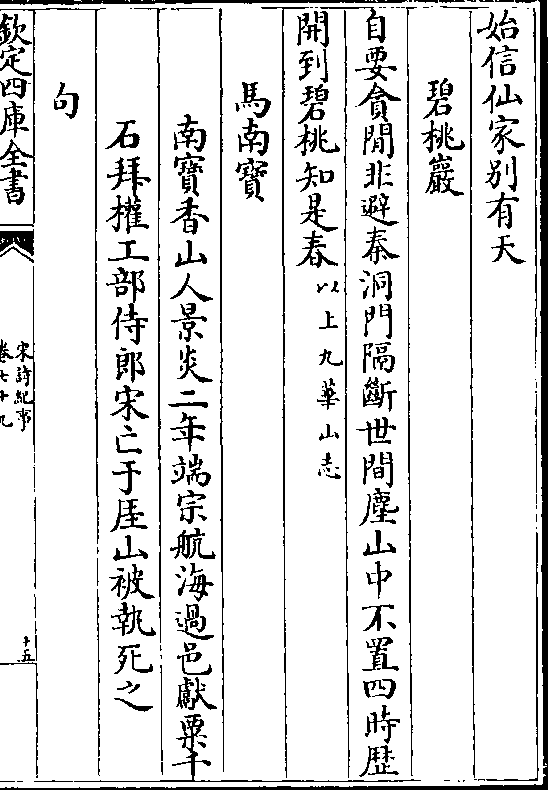 始信仙家别有天
碧桃巖
自要貪閒非避秦洞門隔斷世間塵山中不置四時歴
開到碧桃知是春以上九華山志
馬南寶
南寶香山人景炎二年端宗航海過邑獻粟千
石拜權工部侍郎宋亡于厓山被執死之
句
欽定四庫全書
宋詩紀事
卷七十九
十五